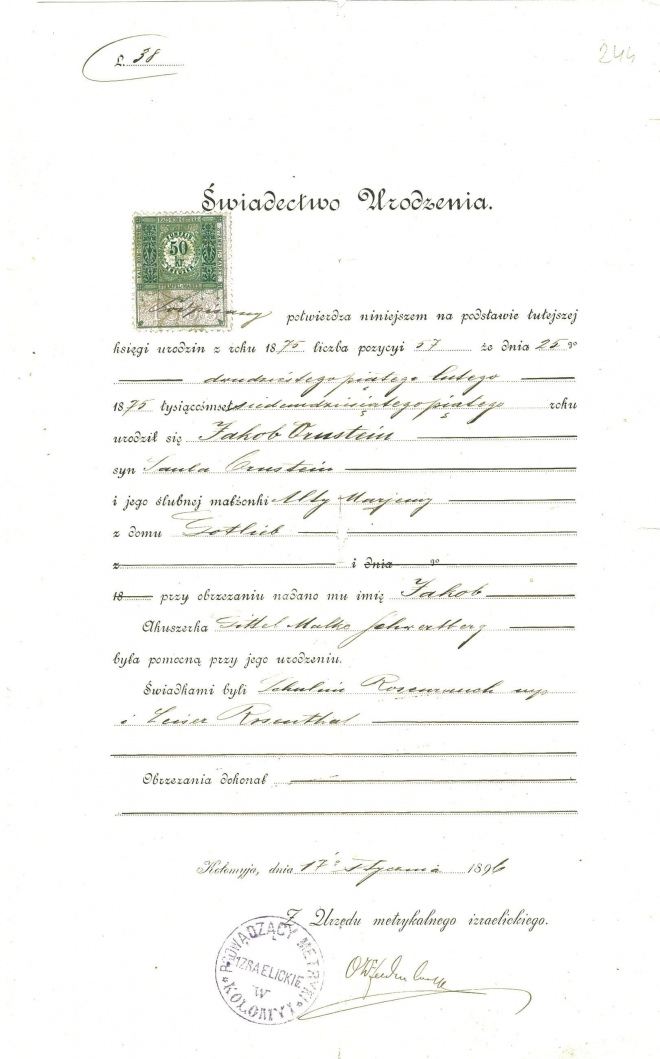 L. 38
244
Świadectwo Urodzenia.
50
kr.
Podpisany potwierdza niniejszem na podstawie tutejszej
księgi urodzin z roku 1875 liczba pozycyi 57 że dnia 25go
dwudziestego piątego lutego
1875 tysiącośmset siedemdziesiątego piątego roku
urodził się Jakob Ornstein
syn Saula Ornstein
i jego ślubnej małżonki Alty Marjemy
z domu Gotlieb
z i dnia go
18 przy obrzezaniu nadano mu imię Jakob
Akuszerka Gittel Malke
była pomocną przy jego urodzeniu.
Świadkami byli Schulim
i Leiser Rosenthal
Obrzezania dokonał
Kołomyja, dnia 17go stycznia 1896
Z Urzędu metrykalnego izraelickiego.
PROWADZĄCY METRYKI
IZRAELICKIE
W
KOŁOMYI